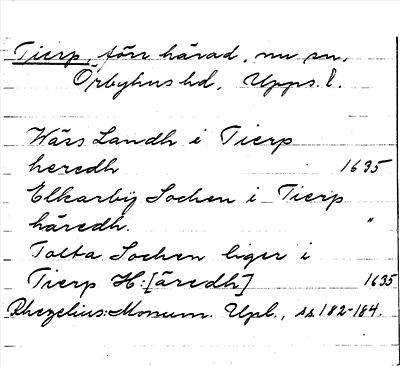 Tierp, förr härad, nu sn,
Örbyhus hd, Upps. l.
Wårs Landh i Tierp
heredh 1635
Elkarbÿ Sochen i Tierp
häredh. "
Tolta Sochen liger i
Tierp H:[äredh] 1635
Rhezelius: Monum. Upl., ss 182-184.